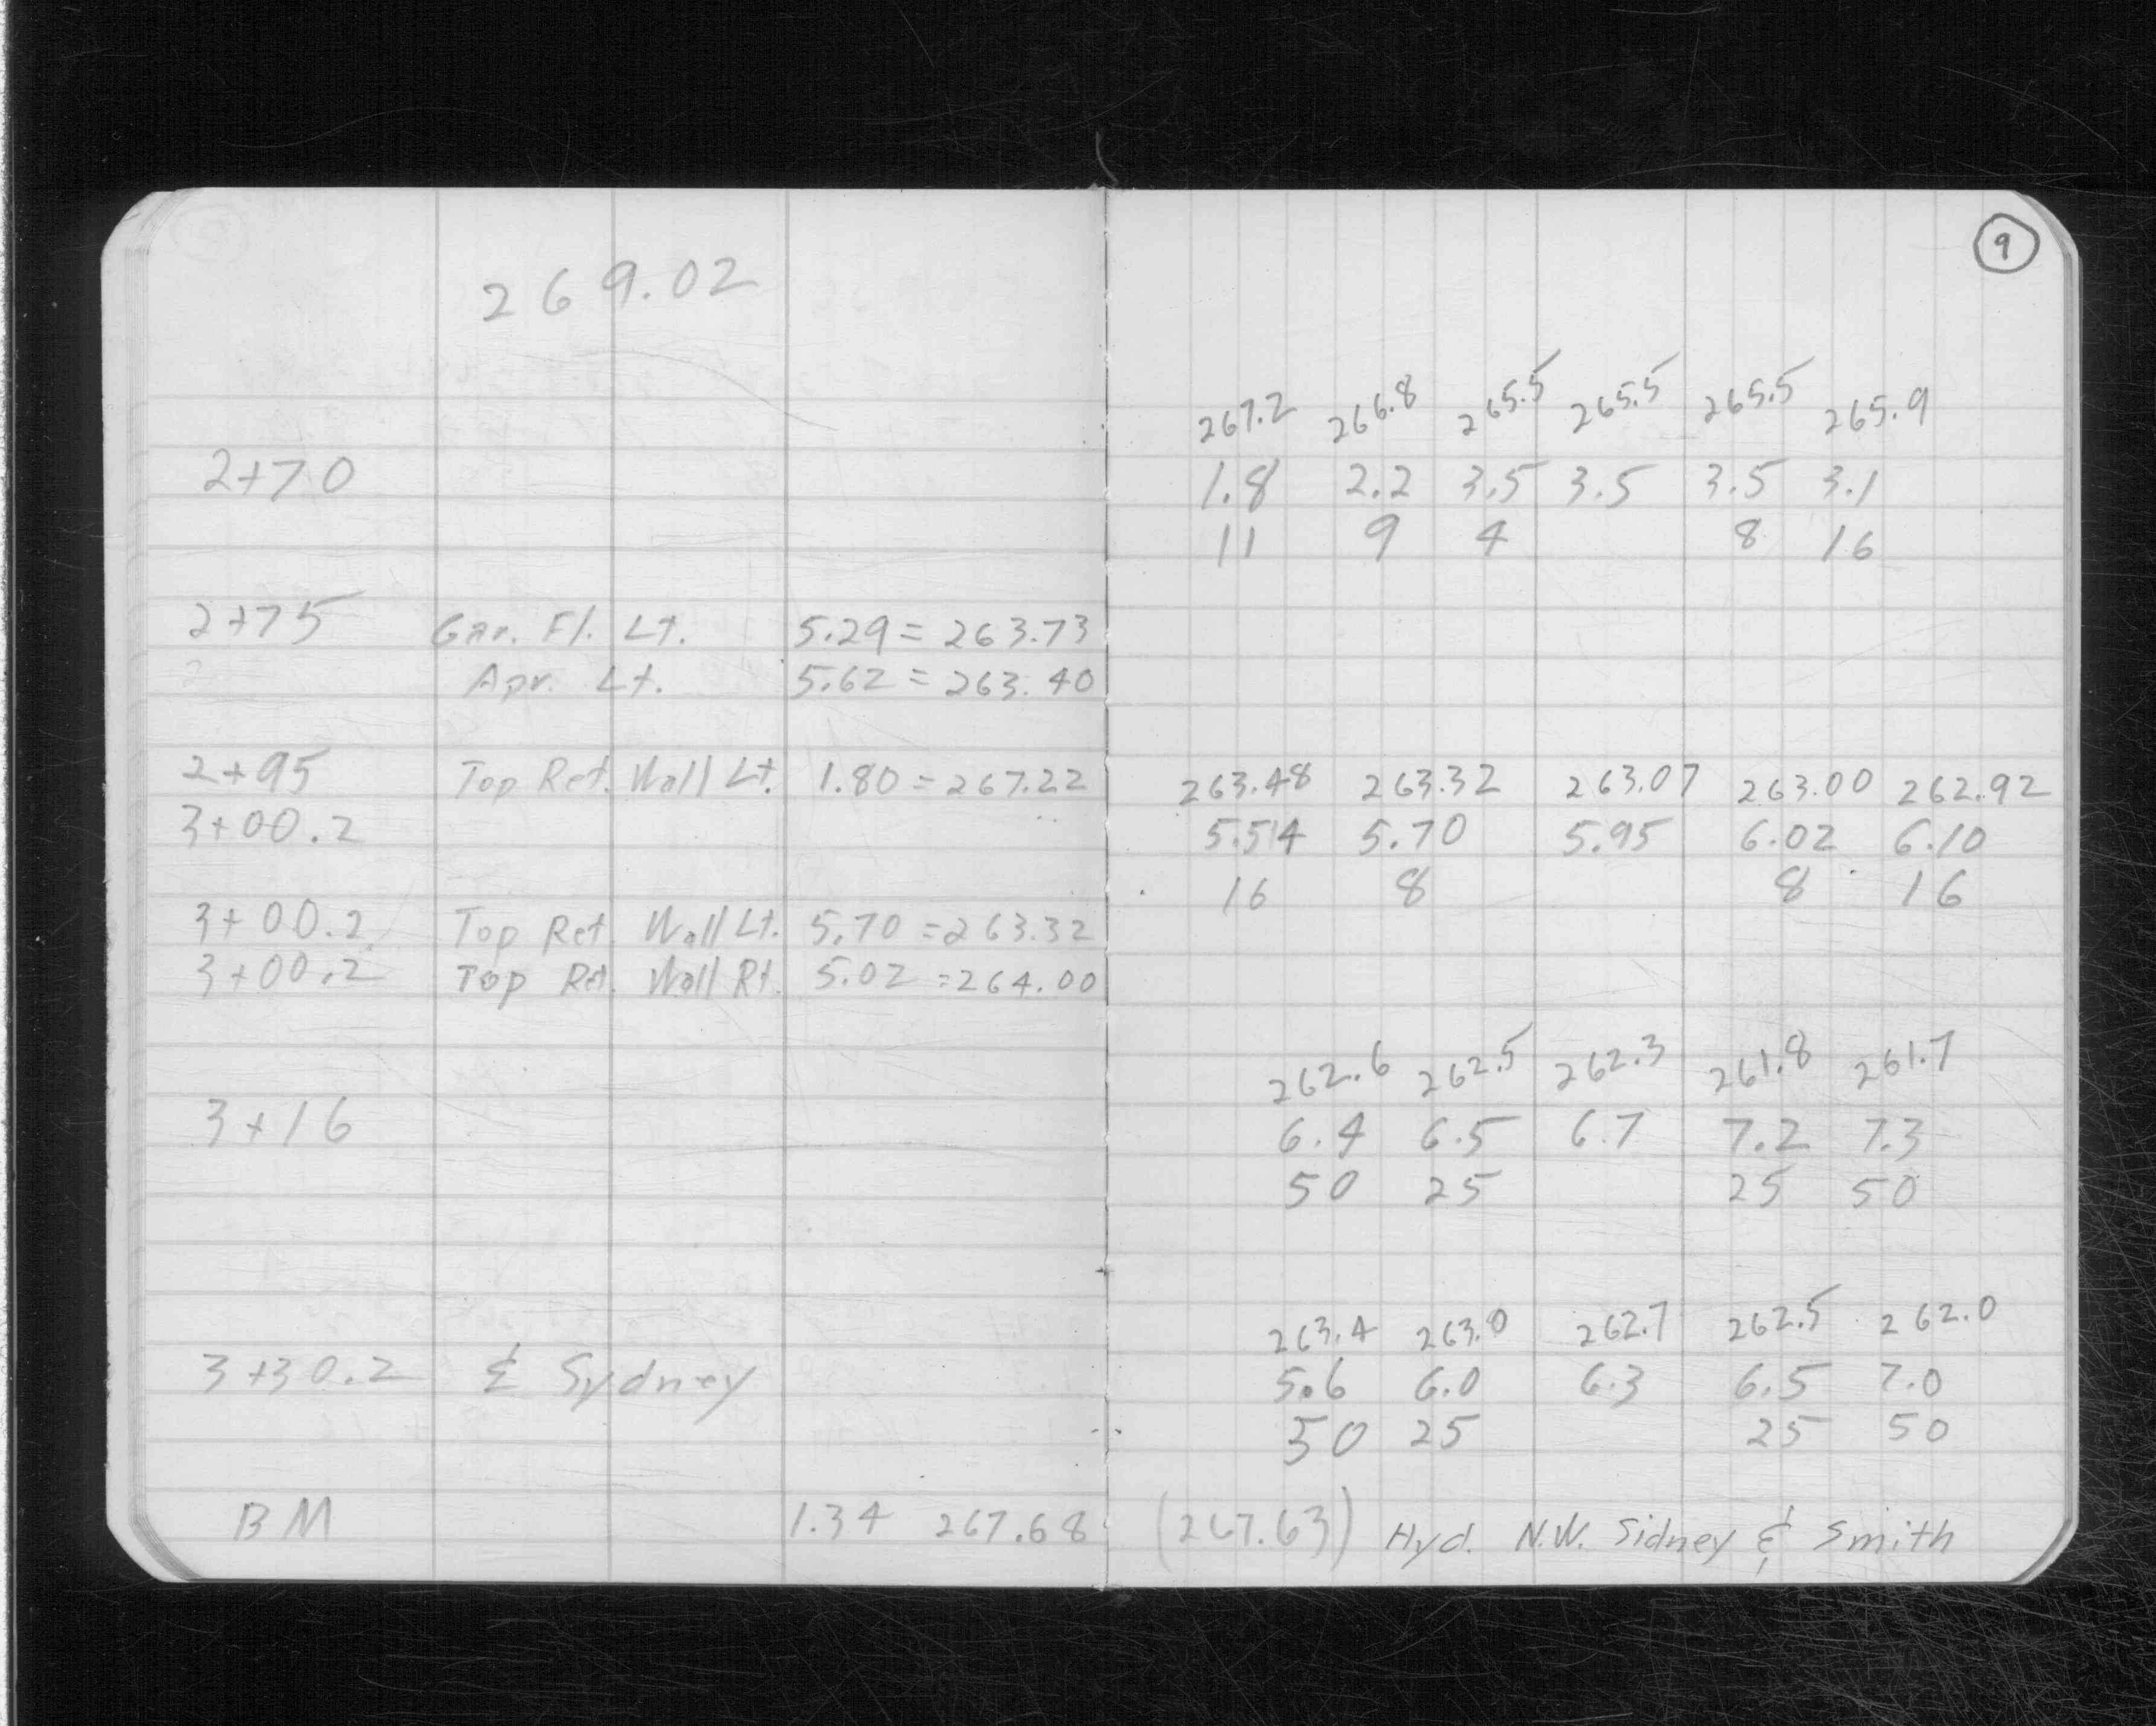 9
269.02
267.2 266.8 265.5 265.5 265.5 265.9
2+70 1.8 2.2 3.5 3.5 3.5 3.1
11 9 4 8 16
2+75 Gar. Fl. Lt. 5.29 = 263.73
Apr. Lt. 5.62 = 263.40
2+95 Top Ret. Wall Lt. 1.80 = 267.22 263.48 263.32 263.07 263.00 262.92
3+00.2 5.54 5.70 5.95 6.02 6.10
16 8 8 16
3+00.2 Top Ret. Wall Lt. 5.70 = 263.32
3+00.2 Top Ret. Wall Rt. 5.02 = 264.00
262.6 262.5 262.3 261.8 261.7
3+16 6.4 6.5 6.7 7.2 7.3
50 25 25 50
263.4 263.0 262.7 262.5 262.0
3+30.2 & Sydney 5.6 6.0 6.3 6.5 7.0
50 25 25 50
BM 1.34 267.68 (267.63) Hyd. N.W. Sidney & Smith